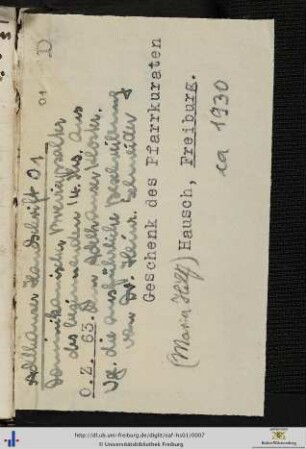 Adelhauser Handschrift 01
Dominikanischer
des beginnenden 14. Jhs. aus
O.Z. 63. dem Adelhauser Kloster.
Vgl. die ausführliche Beschreibung
von Dr. Heinr. Schneider
01 D
Geschenk des Pfarrkuraten
(Maria Hilf) Hausch, Freiburg.
ca 1930
http://dl.ub.uni-freiburg.de/diglit/saf-hs01/0007
© Universitätsbibliothek Freiburg
Baden-Württemberg